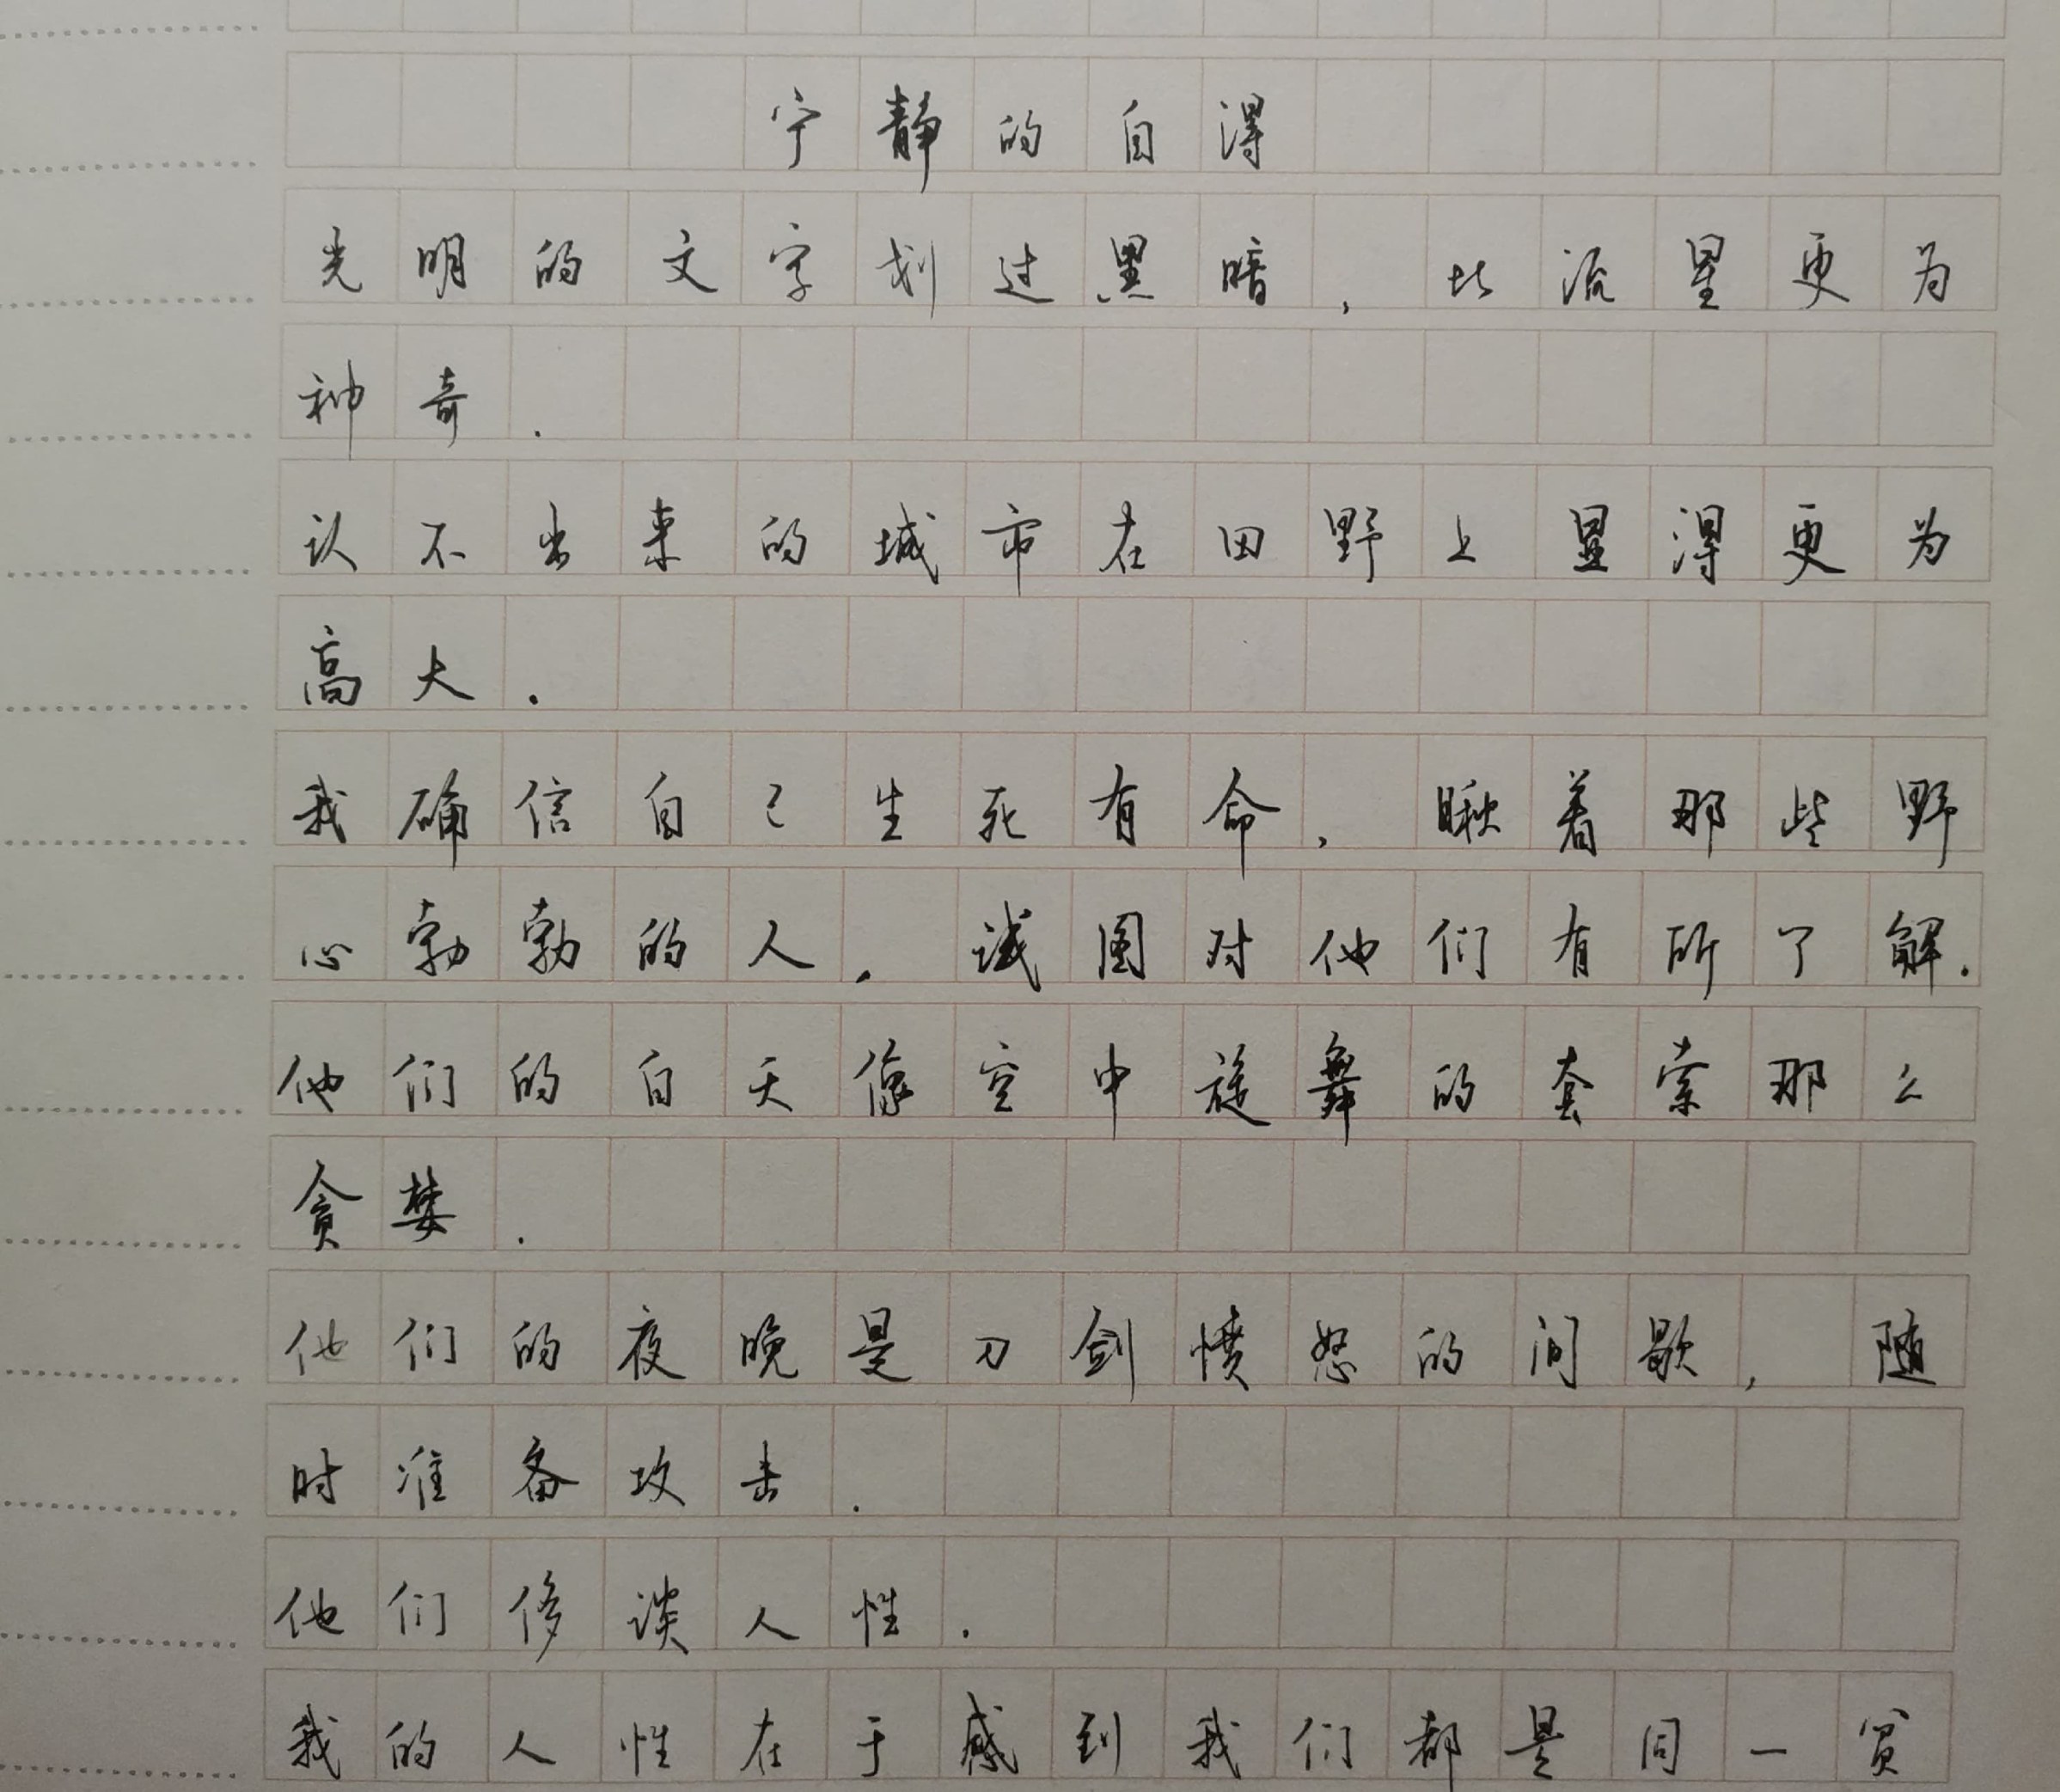 宁静的自得
光明的文字划过黑暗,比流星更为
神奇.
认不出来的城市在田野上显得更为
高大.
我确信自己生死有命,瞅着那些野
心勃勃的人,试图对他们有所了解.
他们的白天像空中旋舞的套索那么
贪婪.
他们的夜晚是刀剑愤怒的间歇,随
时准备攻击.
他们侈谈人性.
我的人性在于感到我们都是同一贫